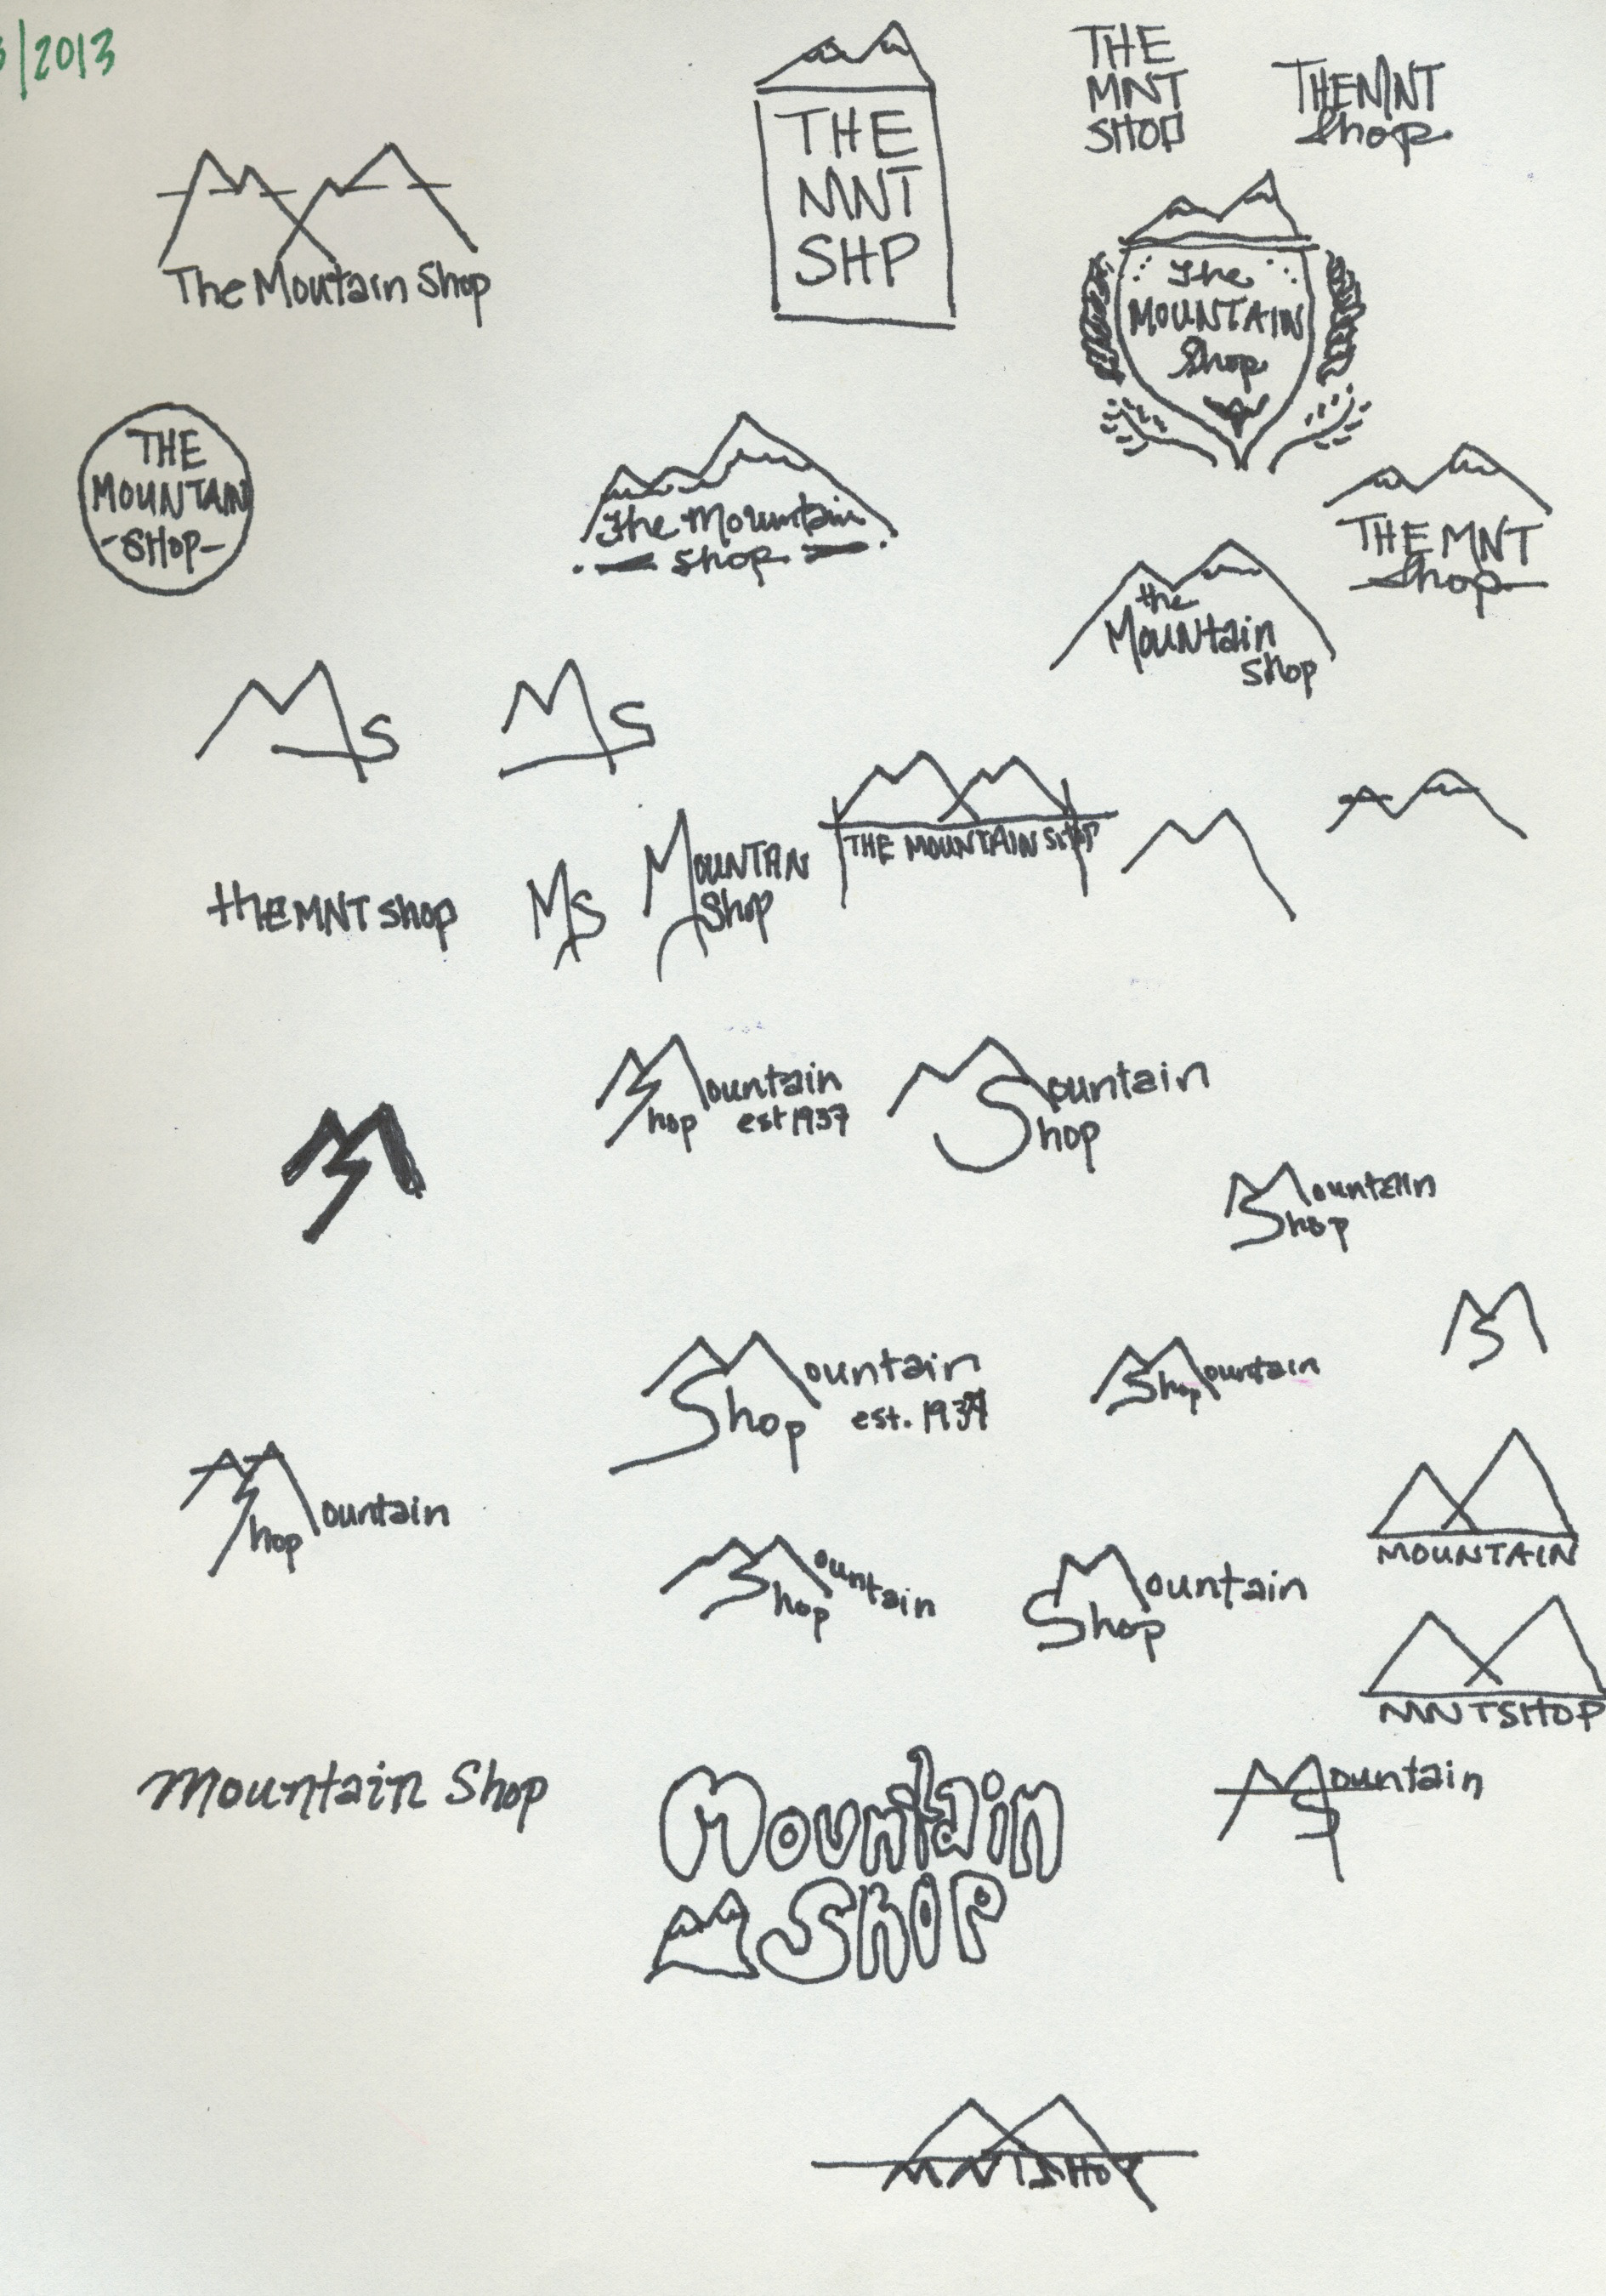 /2013
THE
MNT
SHP
THE
MNT
SHOP
THEMNT
Shop
The Moutain Shop
The
MOUNTAIN
Shop
THE
MOUNTAIN
-SHOP-
The Mountain
Shop
THE MNT
Shop
the
Mountain
Shop
MS
MS
THE MOUNTAIN SHOP
theMNT shop
MS
MOUNTAN
Shop
Mountain
Shop est 1937
Mountain
Shop
MS
Mountain
Shop
MS
Mountain
Shop est. 1937
Mountain
Shop
Mountain
Shop
MOUNTAIN
Mountain
Shop
Mountain
Shop
MNTSHOP
Mountain Shop
Mountain
SHOP
Mountain
S
MNTSHOP